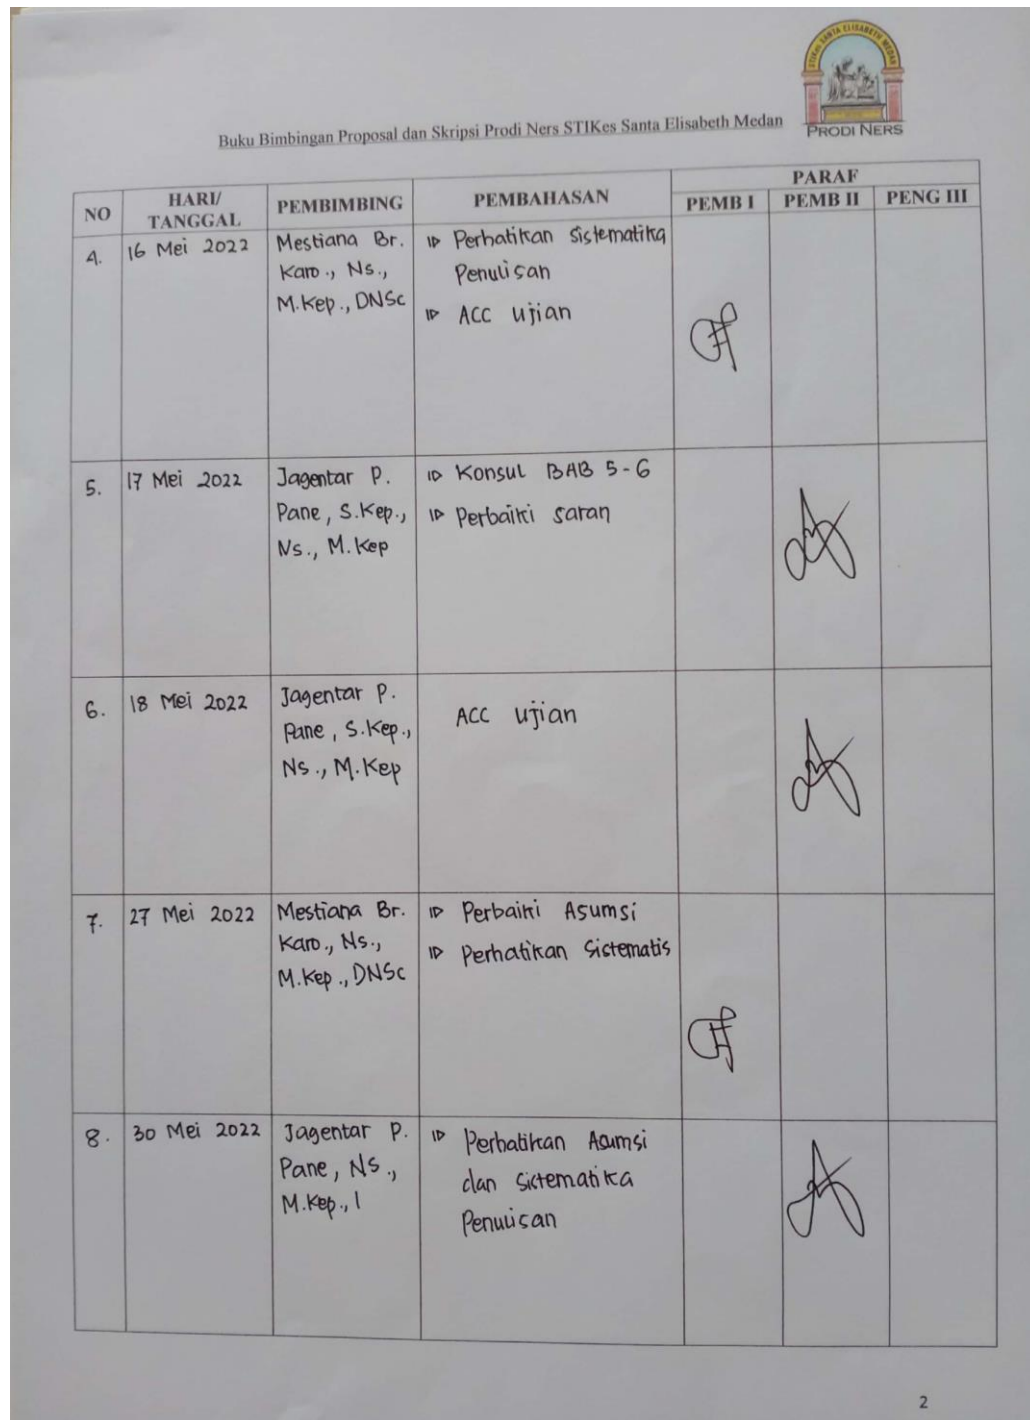 STIKes SANTA ELISABETH MEDAN
PRODI NERS
Buku Bimbingan Proposal dan Skripsi Prodi Ners STIKes Santa Elisabeth Medan
NO
HARI/
TANGGAL
PEMBIMBING
PEMBAHASAN
PARAF
PEMB I
PEMB II
PENG III
4.
16 Mei 2022
Mestiana Br.
Karo., Ns.,
M.Kep., DNSc
Perhatikan Sistematika
Penulisan
ACC Ujian
5.
17 Mei 2022
Jagentar P.
Pane, S.Kep.,
Ns., M.Kep
Konsul BAB 5-6
Perbaiki saran
6.
18 Mei 2022
Jagentar P.
Pane, S.Kep.,
Ns., M.Kep
ACC Ujian
7.
27 Mei 2022
Mestiana Br.
Karo., Ns.,
M.Kep., DNSc
Perbaiki Asumsi
Perhatikan Sistematis
8.
30 Mei 2022
Jagentar P.
Pane, Ns.,
M.Kep., I
Perhatikan Asumsi
dan Sistematika
Penulisan
2